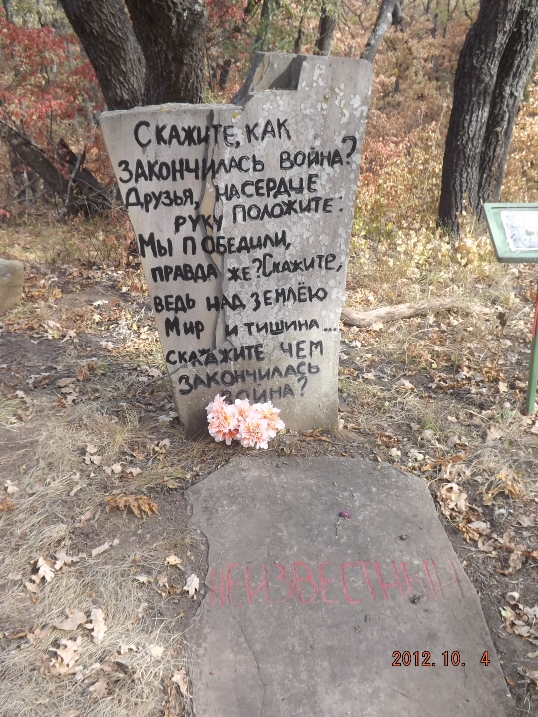 Скажите, как
закончилась война?
Друзья, на сердце
руку положите:
Мы победили,
правда же? Скажите,
ведь над землёю
Мир и тишина...
скажите чем
закончилась
война?
неизвестный
2012.10. 4